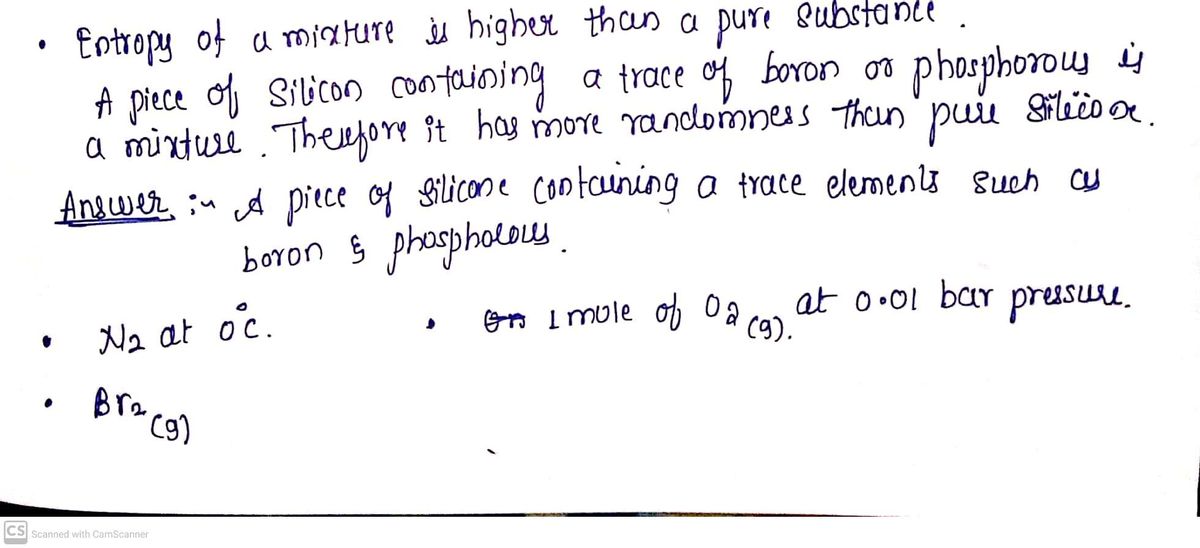 • Entropy of a mixture is higher than a pure substance.
A piece of Silicon containing a trace of boron or phosphorous is
a mixture. Therefore it has more randomness than pure Silicon.
Answer :- A piece of silicone containing a trace elements such as
boron & phosphorous.
• N2 at 0°C.
• 1 mole of O2 (g). at 0.01 bar pressure.
• Br2 (g)
CS Scanned with CamScanner